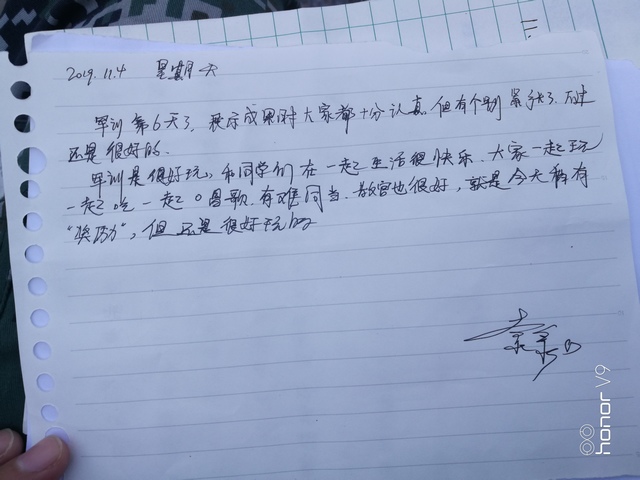 2019.11.4 星期天
军训第6天了，展示成果时大家都十分认真，但有个别累到了，不过
还是很好的。
军训是很好玩，和同学们在一起生活很快乐，大家一起玩
一起吃一起口昌歌，有难同当，教官也很好，就是今天稍有
“奖励”，但还是很好玩的
honor V9